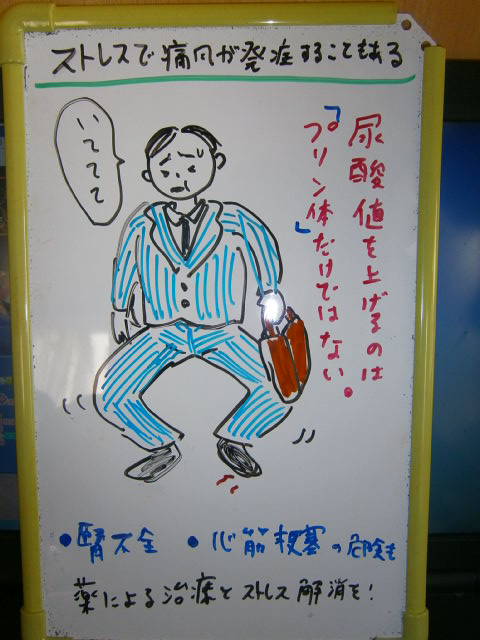 ストレスで痛風が発症することもある
尿酸値を上げるのは
「プリン体」だけではない。
いててて
●腎不全 ●心筋梗塞の危険も
薬による治療とストレス解消を!